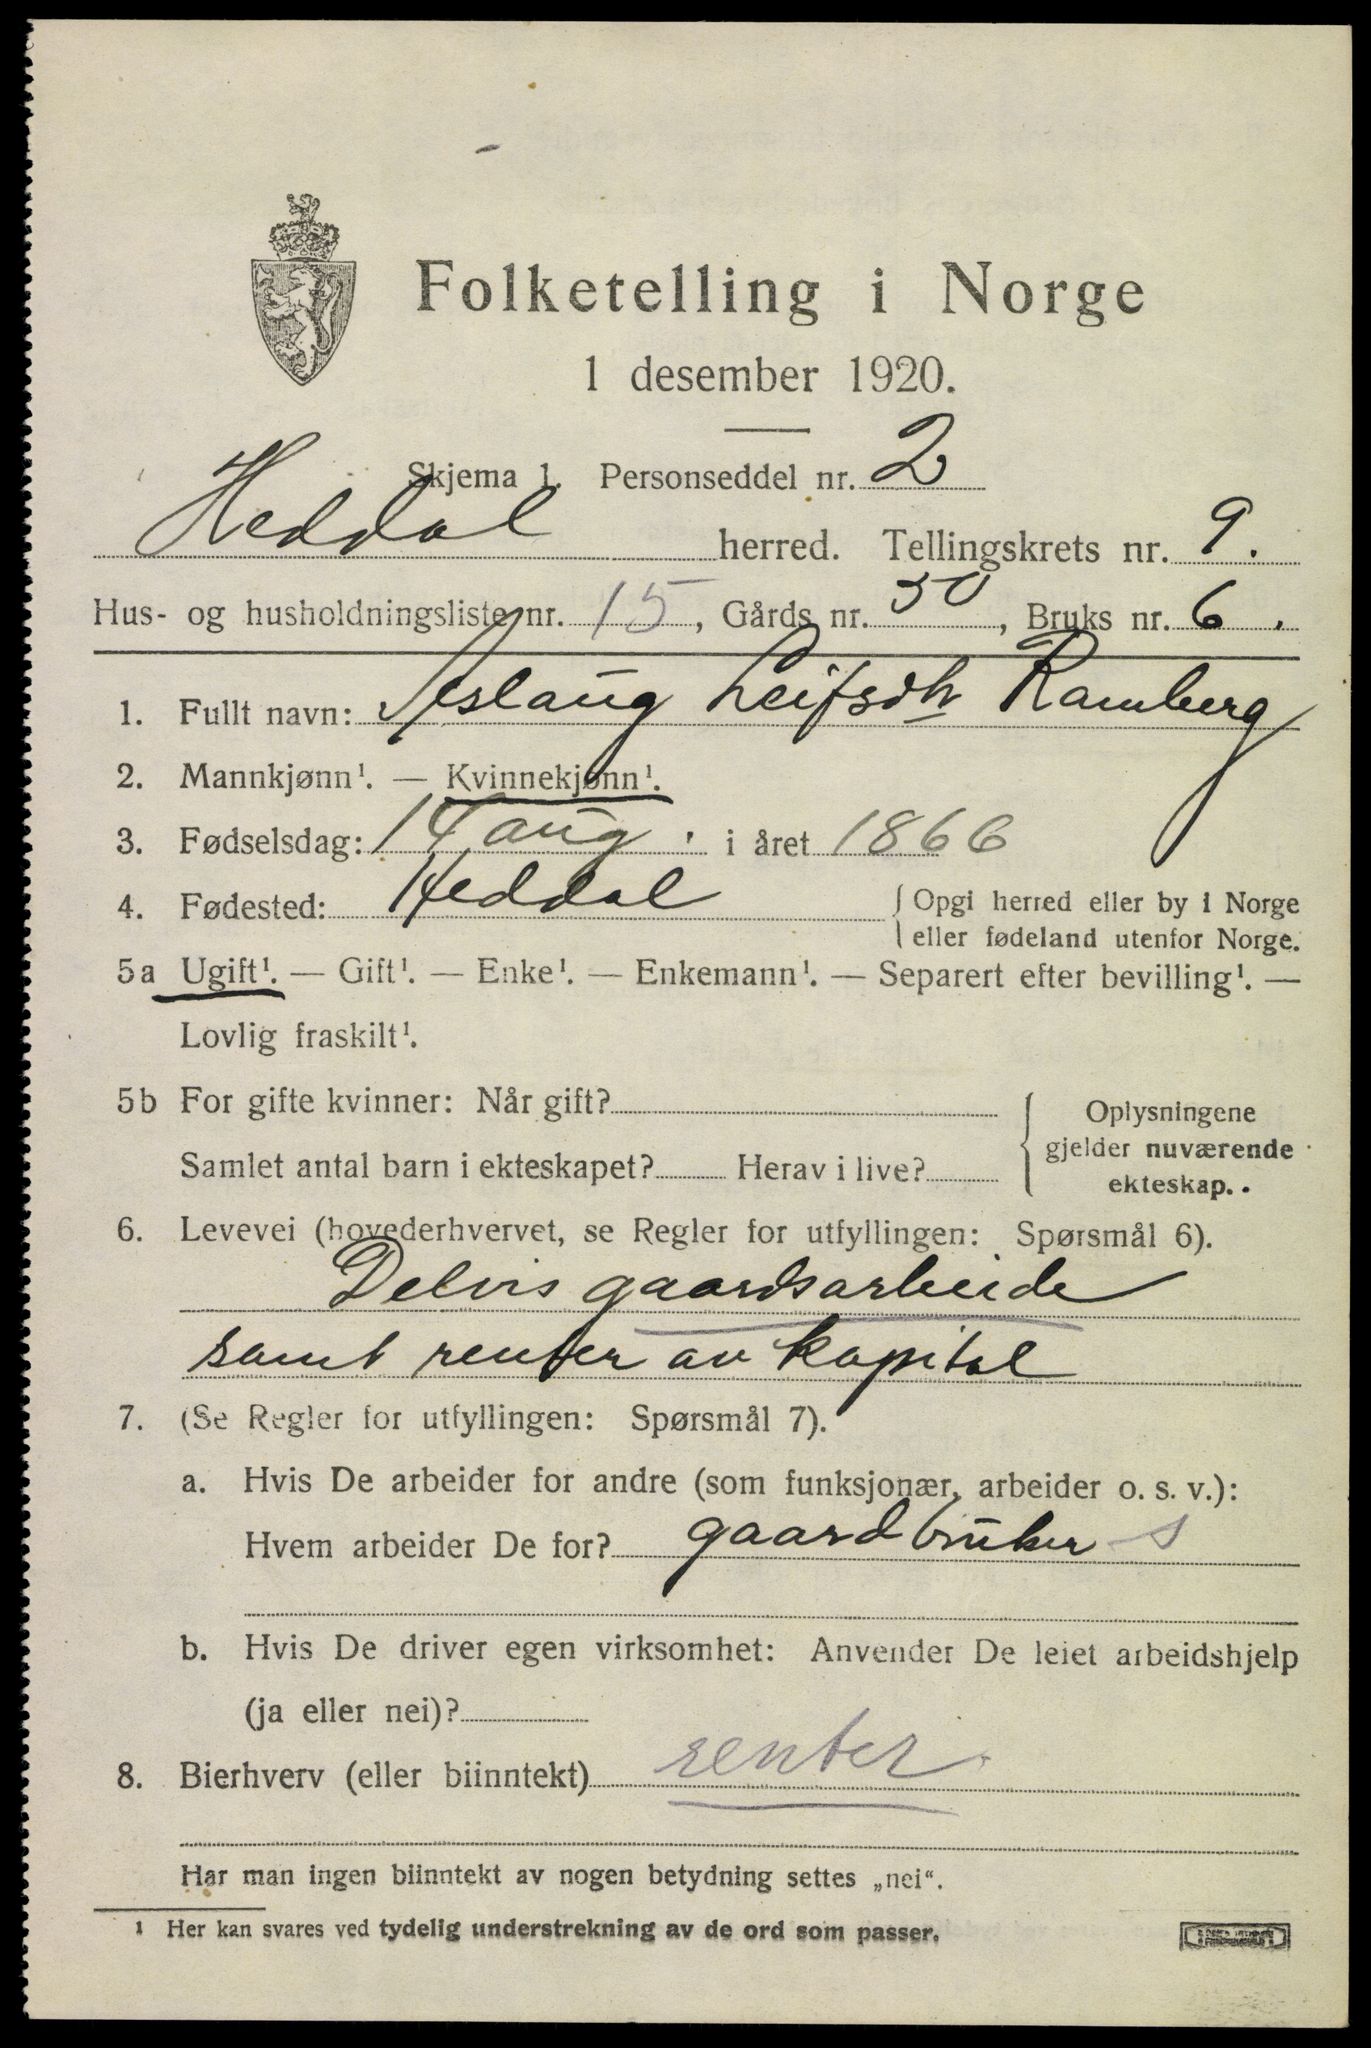 Folketelling i Norge
1 desember 1920.
Skjema 1. Personseddel nr. 2
Heddal herred. Tellingskrets nr. 9.
Hus- og husholdningsliste nr. 15, Gårds nr. 50, Bruks nr. 6.
1. Fullt navn: Aslaug Leifsdtr Ramberg
2. Mannkjønn¹. — Kvinnekjønn¹.
3. Fødselsdag: 14 aug. i året 1866
4. Fødested: Heddal { Opgi herred eller by i Norge
eller fødeland utenfor Norge.
5a Ugift¹. — Gift¹. — Enke¹. — Enkemann¹. — Separert efter bevilling¹. —
Lovlig fraskilt¹.
5b For gifte kvinner: Når gift?
Samlet antal barn i ekteskapet? Herav i live?
Oplysningene
gjelder nuværende
ekteskap.
6. Levevei (hovederhvervet, se Regler for utfyllingen: Spørsmål 6).
Delvis gaardsarbeide
samt renter av kapital
7. (Se Regler for utfyllingen: Spørsmål 7).
a. Hvis De arbeider for andre (som funksjonær, arbeider o. s. v.):
Hvem arbeider De for? gaardbruker s
b. Hvis De driver egen virksomhet: Anvender De leiet arbeidshjelp
(ja eller nei)?
8. Bierhverv (eller biinntekt) renter
Har man ingen biinntekt av nogen betydning settes „nei“.
¹ Her kan svares ved tydelig understrekning av de ord som passer.